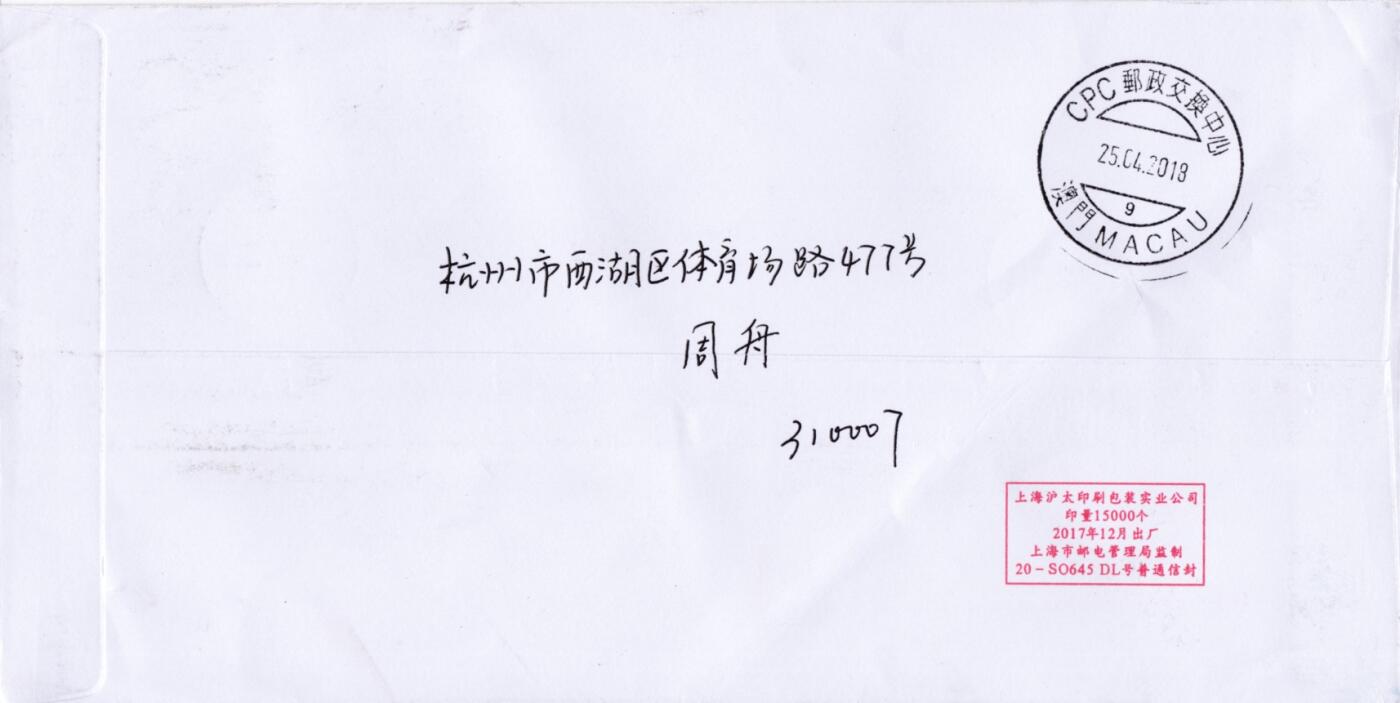 CPC 郵政交換中心
25.04.2018
9
澳門 MACAU
杭州市西湖区体育场路477号
周舟
310007
上海沪太印刷包装实业公司
印量15000个
2017年12月出厂
上海市邮电管理局监制
20-SO645 DL号普通信封